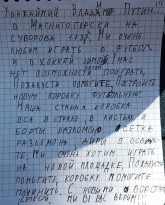 УВАЖАЕМЫЙ ВЛАДИМИР ПУТИН!!!
МАГНИТОГОРСКА НА
СУВОРОВА МЫ ОЧЕНЬ
ЛЮБИМ ИГРАТЬ В ФУТБОЛ
И В ХОККЕЙ ЗИМОЙ У НАС
НЕТ ВОЗМОЖНОСТИ ПОИГРАТЬ,
ПОЖАЛУСТА ПОМОГИТЕ ПОСТРОИТЬ
НОВУЮ КОРОБКУ
НАША СТАРАЯ КОРОБКА
ВСЯ В СТЕКЛЕ, В ЛИСТЬЯХ А
БОРТЫ СЕТКА
РАЗЛОМАНА ВОРИ В
МЫ ОЧЕНЬ ХОТИМ ИГРАТЬ
НА НОВОЙ ПЛОЩАДКЕ, ПОЖАЛУЙ
ПОМОГИТЕ КОРОБКУ ПОМОГИТЕ
ПОЧИНИТЬ, С НОВЫМИ ВОРОТАМИ
СЕТКОЙ, МЫ В ВАС ВЕРИМ!!!